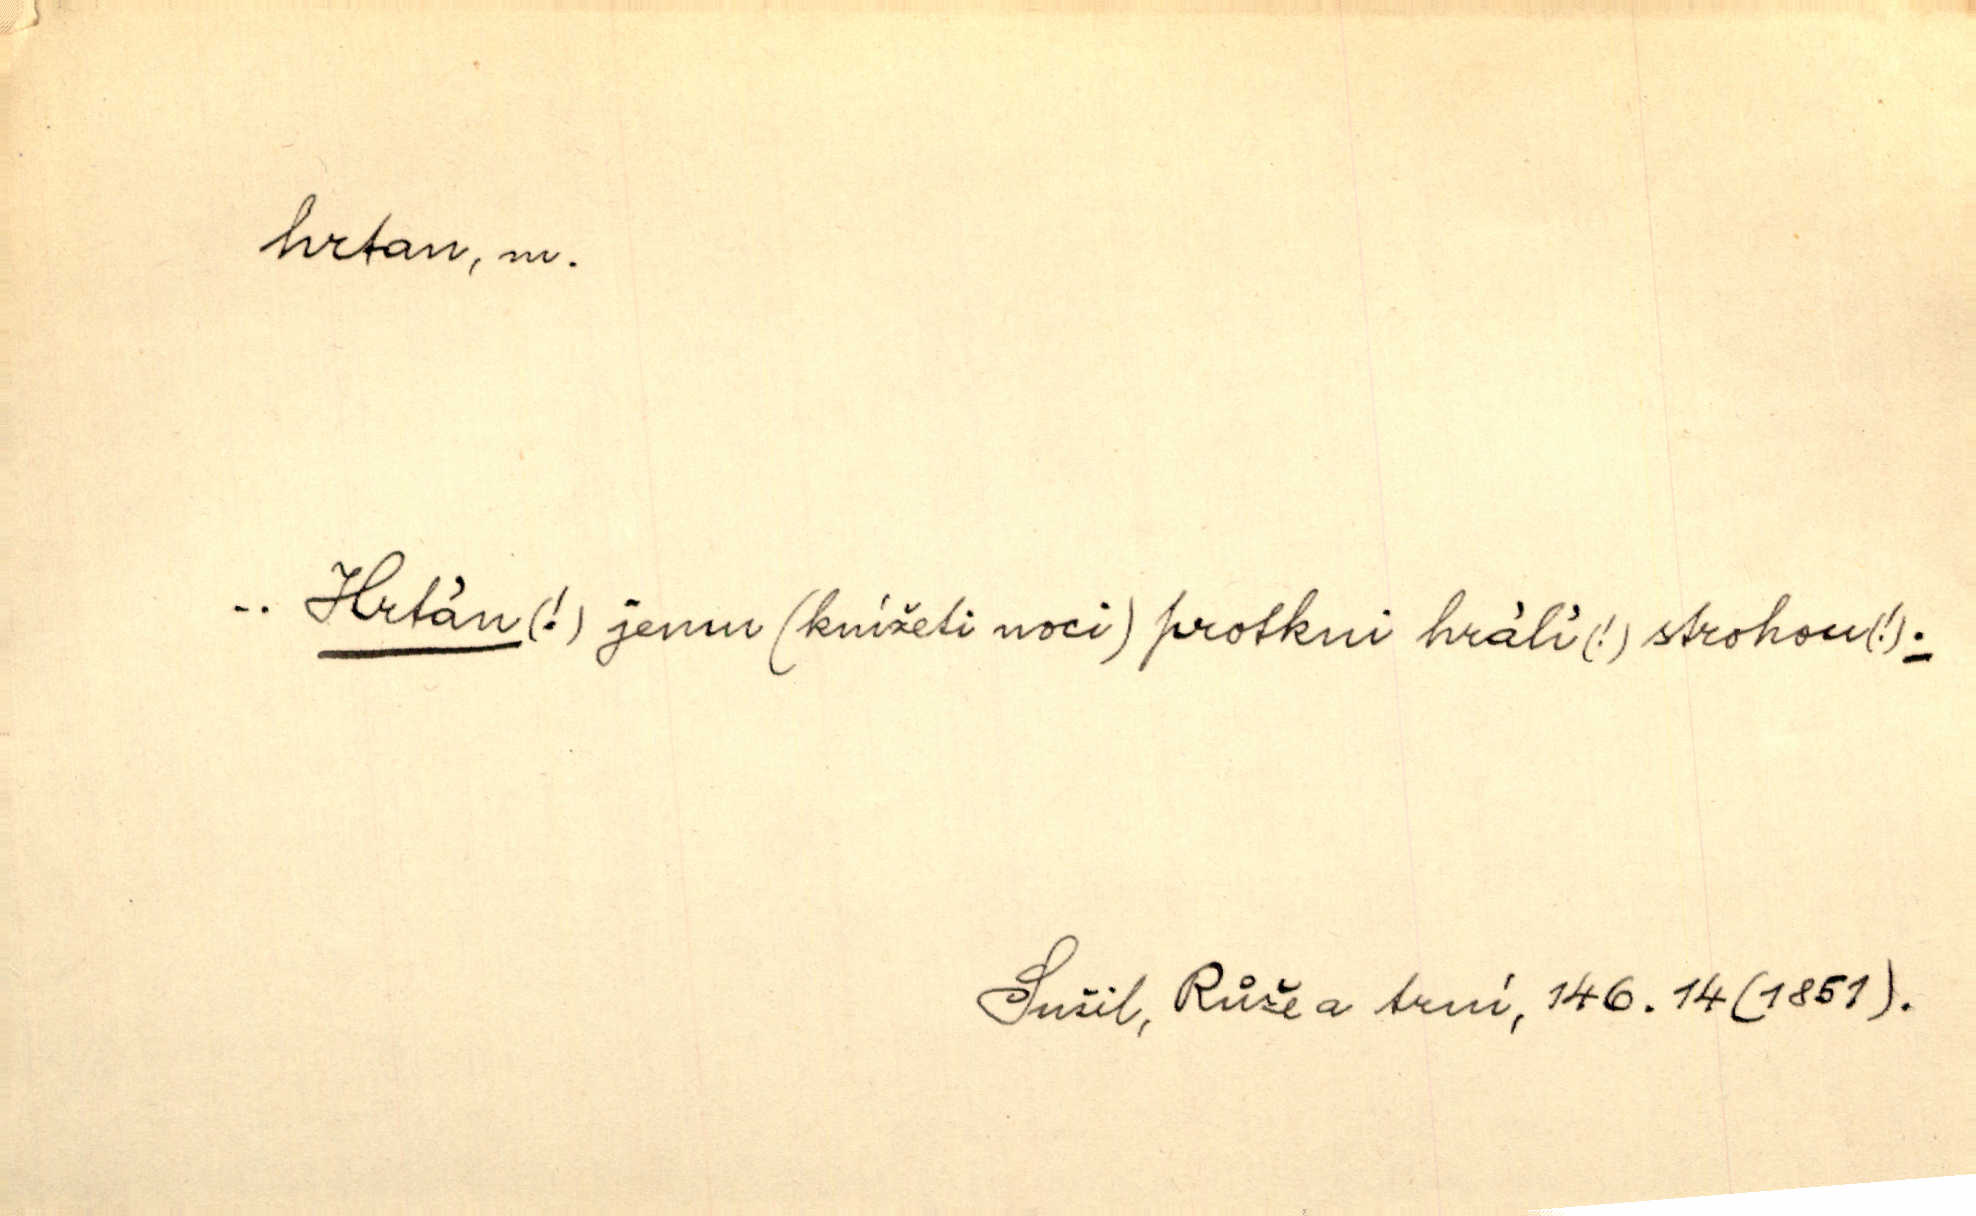 hrtan, m.
-- Hrtán(!) jemu (knížeti noci) protkni hrálí(!) strohou(!).
Sušil, Růže a trní, 146. 14 (1851).